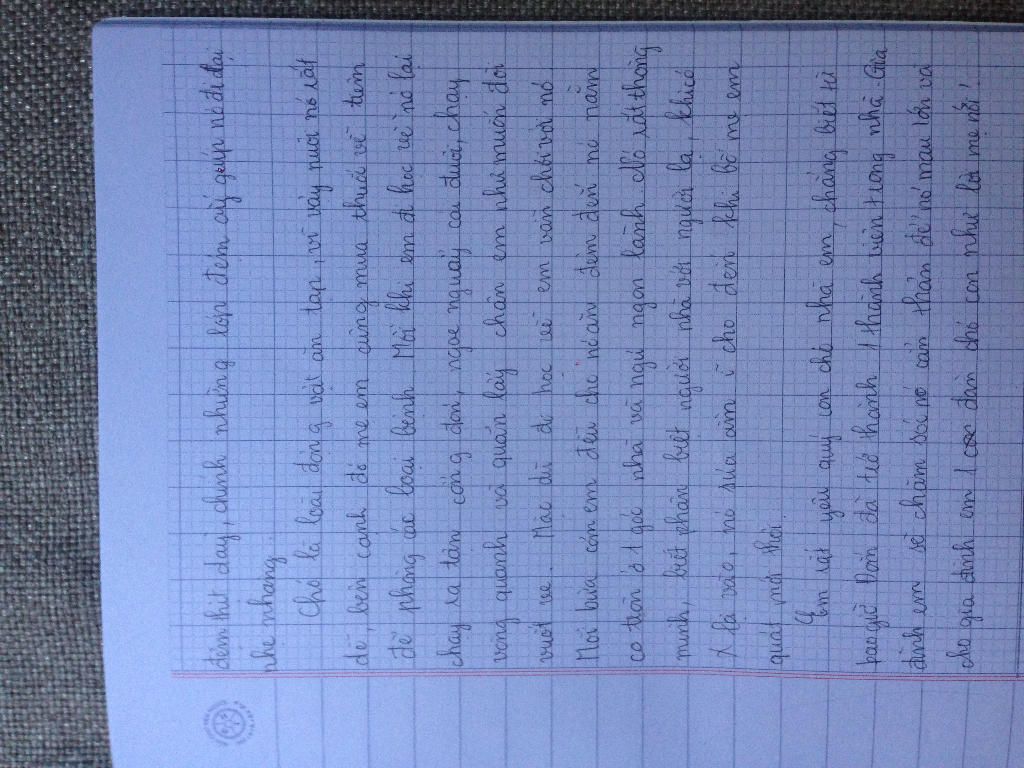 đệm thịt dày, chính nhừng lớp đệm ấy giúp nó đi lại
nhẹ nhàng.
Chó là loài động vật ăn tạp, vì vậy nuôi nó rất
dễ, bên cạnh đó mẹ em cũng mua thuốc về tiêm
để phòng các loại bệnh. Mỗi khi em đi học về nó lại
chạy ra tận cổng đón, ngoe nguẩy cái đuôi, chạy
vòng quanh và quấn lấy chân em như muốn đòi
vuốt ve. Mặc dù đi học về em vẫn chơi với nó
Mỗi bữa cơm em đều cho nó ăn đêm đến nó nằm
co tròn ở 1 góc nhà và ngủ ngon lành chó rất thông
minh, biết phân biệt người nhà với người lạ, khi có
lạ vào, nó sủa ầm ĩ cho đến khi bố mẹ em
quát mới thôi.
Em rất yêu quý con chó nhà em, chẳng biết từ
bao giờ Đốm đã trở thành 1 thành viên trong nhà. Gia
đình em sẽ chăm sóc nó cẩn thận để nó mau lớn và
cho gia đình em 1 đàn chó con như lời mẹ nói!